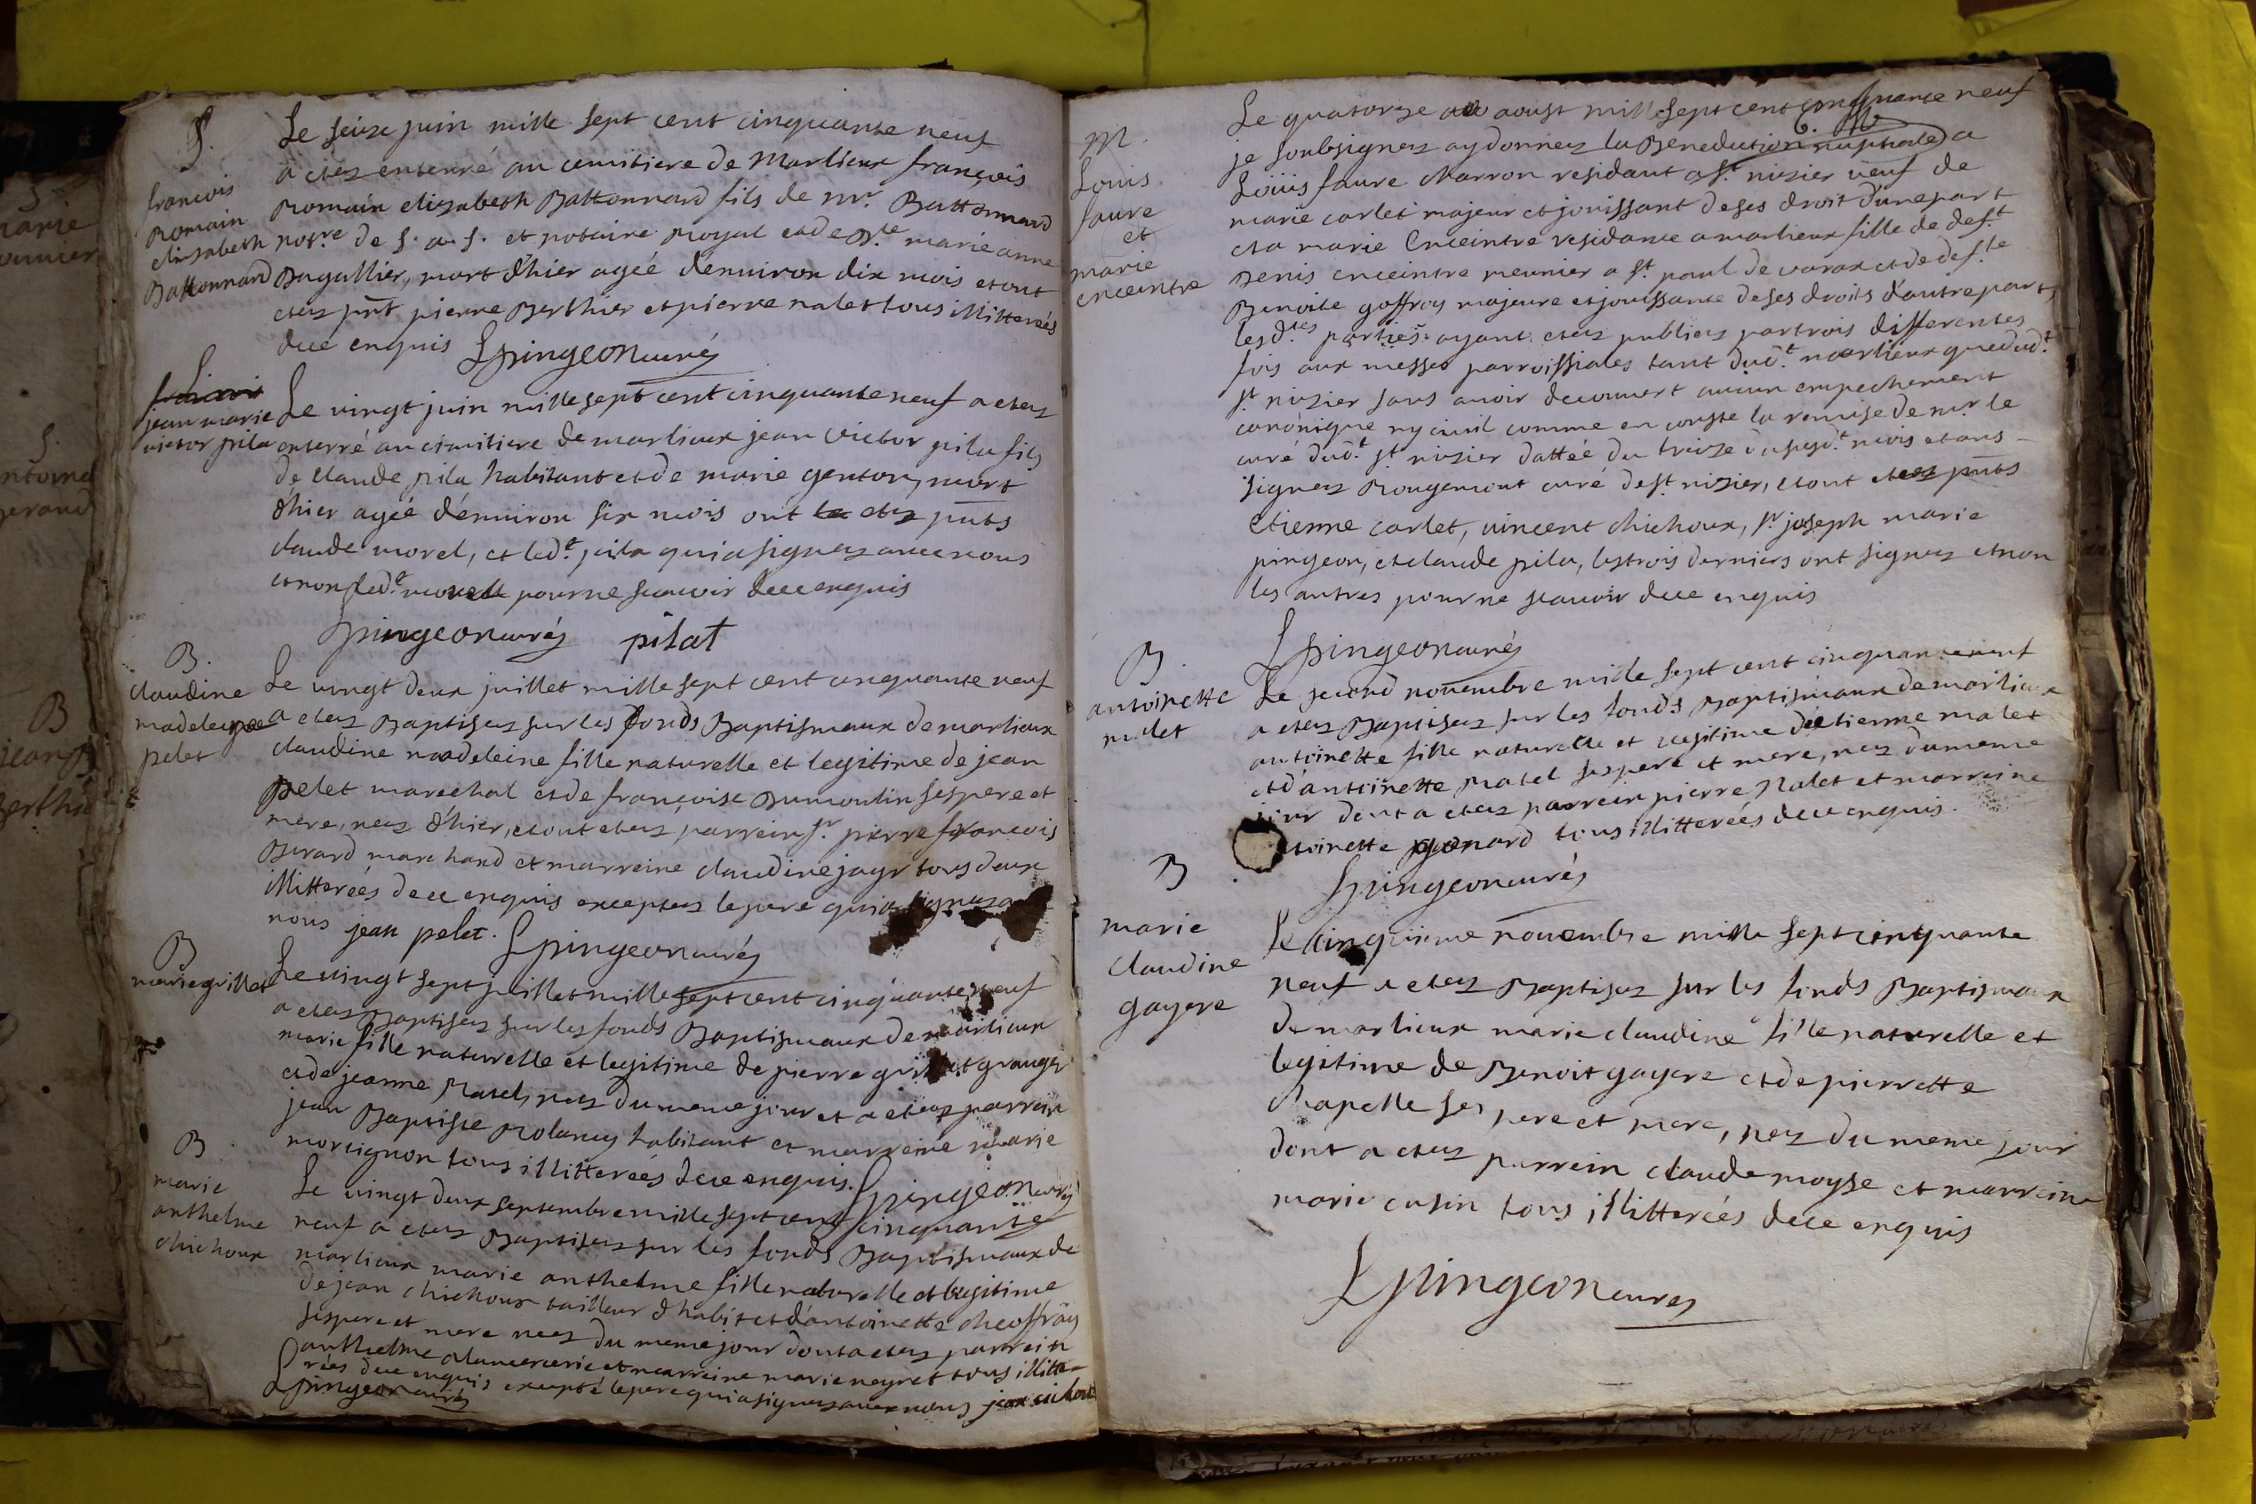 S.
françois
Romain
elizabeth
Battonnard
Le seize juin mille sept cent cinquante neuf
a etez enterré au cemitiere de Marlieux françois
Romain elizabeth Battonnard fils de mr. Battonnard
not.re de s. a. s. et notaire Royal et de d.lle marie anne
Bugallier, mort d'hier ageé d'enuiron dix mois et ont
etez pnt pierre Berthier et pierre nalet tous illitereés
dece enquis Lpingeon curéz
S
jean marie
victor pila
Le vingt juin mille sept cent cinquante neuf a etez
enterré au cimitiere de marlieux jean victor pila fils
de claude pila habitant et de marie genton, mort
d'hier ageé d'enuiron six mois ont etez pnts
claude morel, et led.t pila qui a signez auec nous
et non led.t morel pour ne scauoir dece enquis
Lpingeon curéz pilat
B.
claudine
madeleine
pelet
Le vingt deux juillet mille sept cent cinquante neuf
a etez Baptisez sur les fonds Baptismaux de marlieux
claudine madeleine fille naturelle et legitime de jean
pelet marechal et de françoise Dumoulin ses pere et
mere, nez d'hier, et ont etez parrein sr. pierre françois
Berard marchand et marreine claudine jayr tous deux
illittereés dece enquis exceptez le pere qui a signez a
nous jean pelet. Lpingeon curéz
B
marie grillet
Le vingt sept juillet mille sept cent cinquante neuf
a etez Baptisez sur les fonds Baptismaux de marlieux
marie fille naturelle et legitime de pierre grillet granger
et de jeanne Matel, nez du meme jour et a etez parrein
jean Baptiste Rolancy habitant et marreine marie
morsignon tous illittereés dece enquis. Lpingeon curéz
B.
marie
anthelme
chichoux
Le vingt deux septembre mille sept cent cinquante
neuf a etez Baptisez sur les fonds Baptismaux de
marlieux marie anthelme fille naturelle et legitime
de jean chichoux tailleur d'habit et d'antoinette cheoffray
ses pere et mere nez du meme jour dont a etez parrein
anthelme et marreine marie neyret tous illitte-
reés dece enquis excepté le pere qui a signez auec nous jean
Lpingeon curéz
M.
Louis
faure
et
marie
enceintre
Le quatorze aoust mille sept cent cinquante neuf
je soubsignez ay donnez la Benediction nuptiale a
Loüis faure charron residant a st. nizier veuf de
marie carlet majeur et jouissant de ses droit d'une part
et a marie Enceintre residante a marlieux fille de def.t
Denis enceintre meunier a st. paul de varax et de def.te
Benoite goffroy majeure et jouissante de ses droits d'autre part,
lesd.tes parties ayant etez publiez par trois differentes
fois aux messes parroissiales tant dud.t marlieux que dud.t
st. nizier sans auoir decouuert aucun empechement
canonique ny ciuil comme en conste la remise de mr. le
curé dud.t st. nizier dattée du treize du susd.t mois et ans
signez Rougemont curé de st. nizier, et ont etez pnts
etienne carlet, vincent chichoux, sr. joseph marie
pingeon, et claude pila, les trois derniers ont signez et non
les autres pour ne scauoir dece enquis
Lpingeon curéz
B.
antoinette
malet
Le second nouembre mille sept cent cinquante neuf
a etez Baptisez sur les fonds Baptismaux de marlieux
antoinette fille naturelle et legitime d'etienne malet
et d'antoinette Matel ses pere et mere, nez du meme
jour dont a etez parrein pierre Nalet et marreine
toinette genard tous illittereés dece enquis.
Lpingeon curéz
B
marie
claudine
gayere
Le cinquieme nouembre mille sept cinquante
neuf a etez Baptisez sur les fonds Baptismaux
de marlieux marie claudine fille naturelle et
legitime de Benoit gayere et de pierrette
chapelle ses pere et mere, nez du meme jour
dont a etez parrein claude moyse et marreine
marie cusin tous illittereés dece enquis
Lpingeon curéz